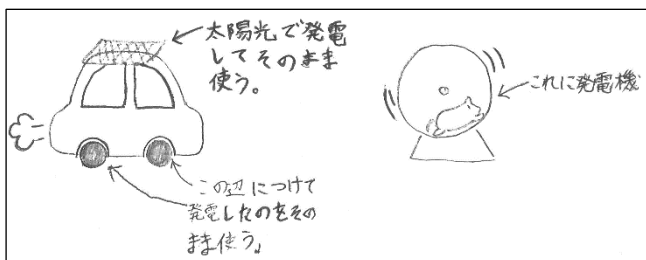 太陽光で発電
してそのまま
使う。
この辺につけて
発電したのをその
まま使う。
これに発電機